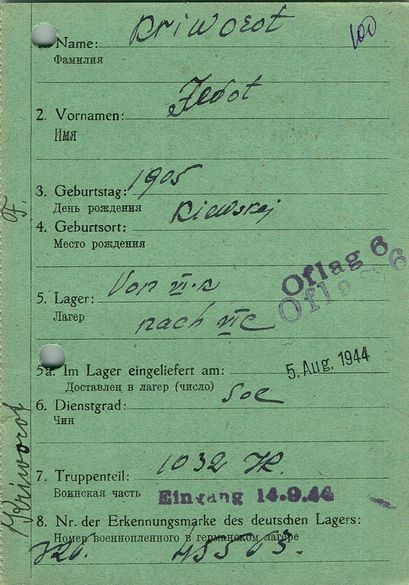 100
1. Name: Kriworot
Фамилия
Fedot
2. Vornamen:
Имя
3. Geburtstag: 1905
День рождения
4. Geburtsort: Kiewskij
Место рождения
Oflag 6
Oflag 6
5. Lager: Von VI-K
Лагер
nach VI C
5a. Im Lager eingeliefert am: 5. Aug. 1944
Доставлен в лагер (число)
6. Dienstgrad: Sol
Чин
7. Truppenteil: 1032
Воинская часть Eingang 14.9.44
8. Nr. der Erkennungsmarke des deutschen Lagers:
Номер военнопленного в германском лагере
326.
F. Kriworot